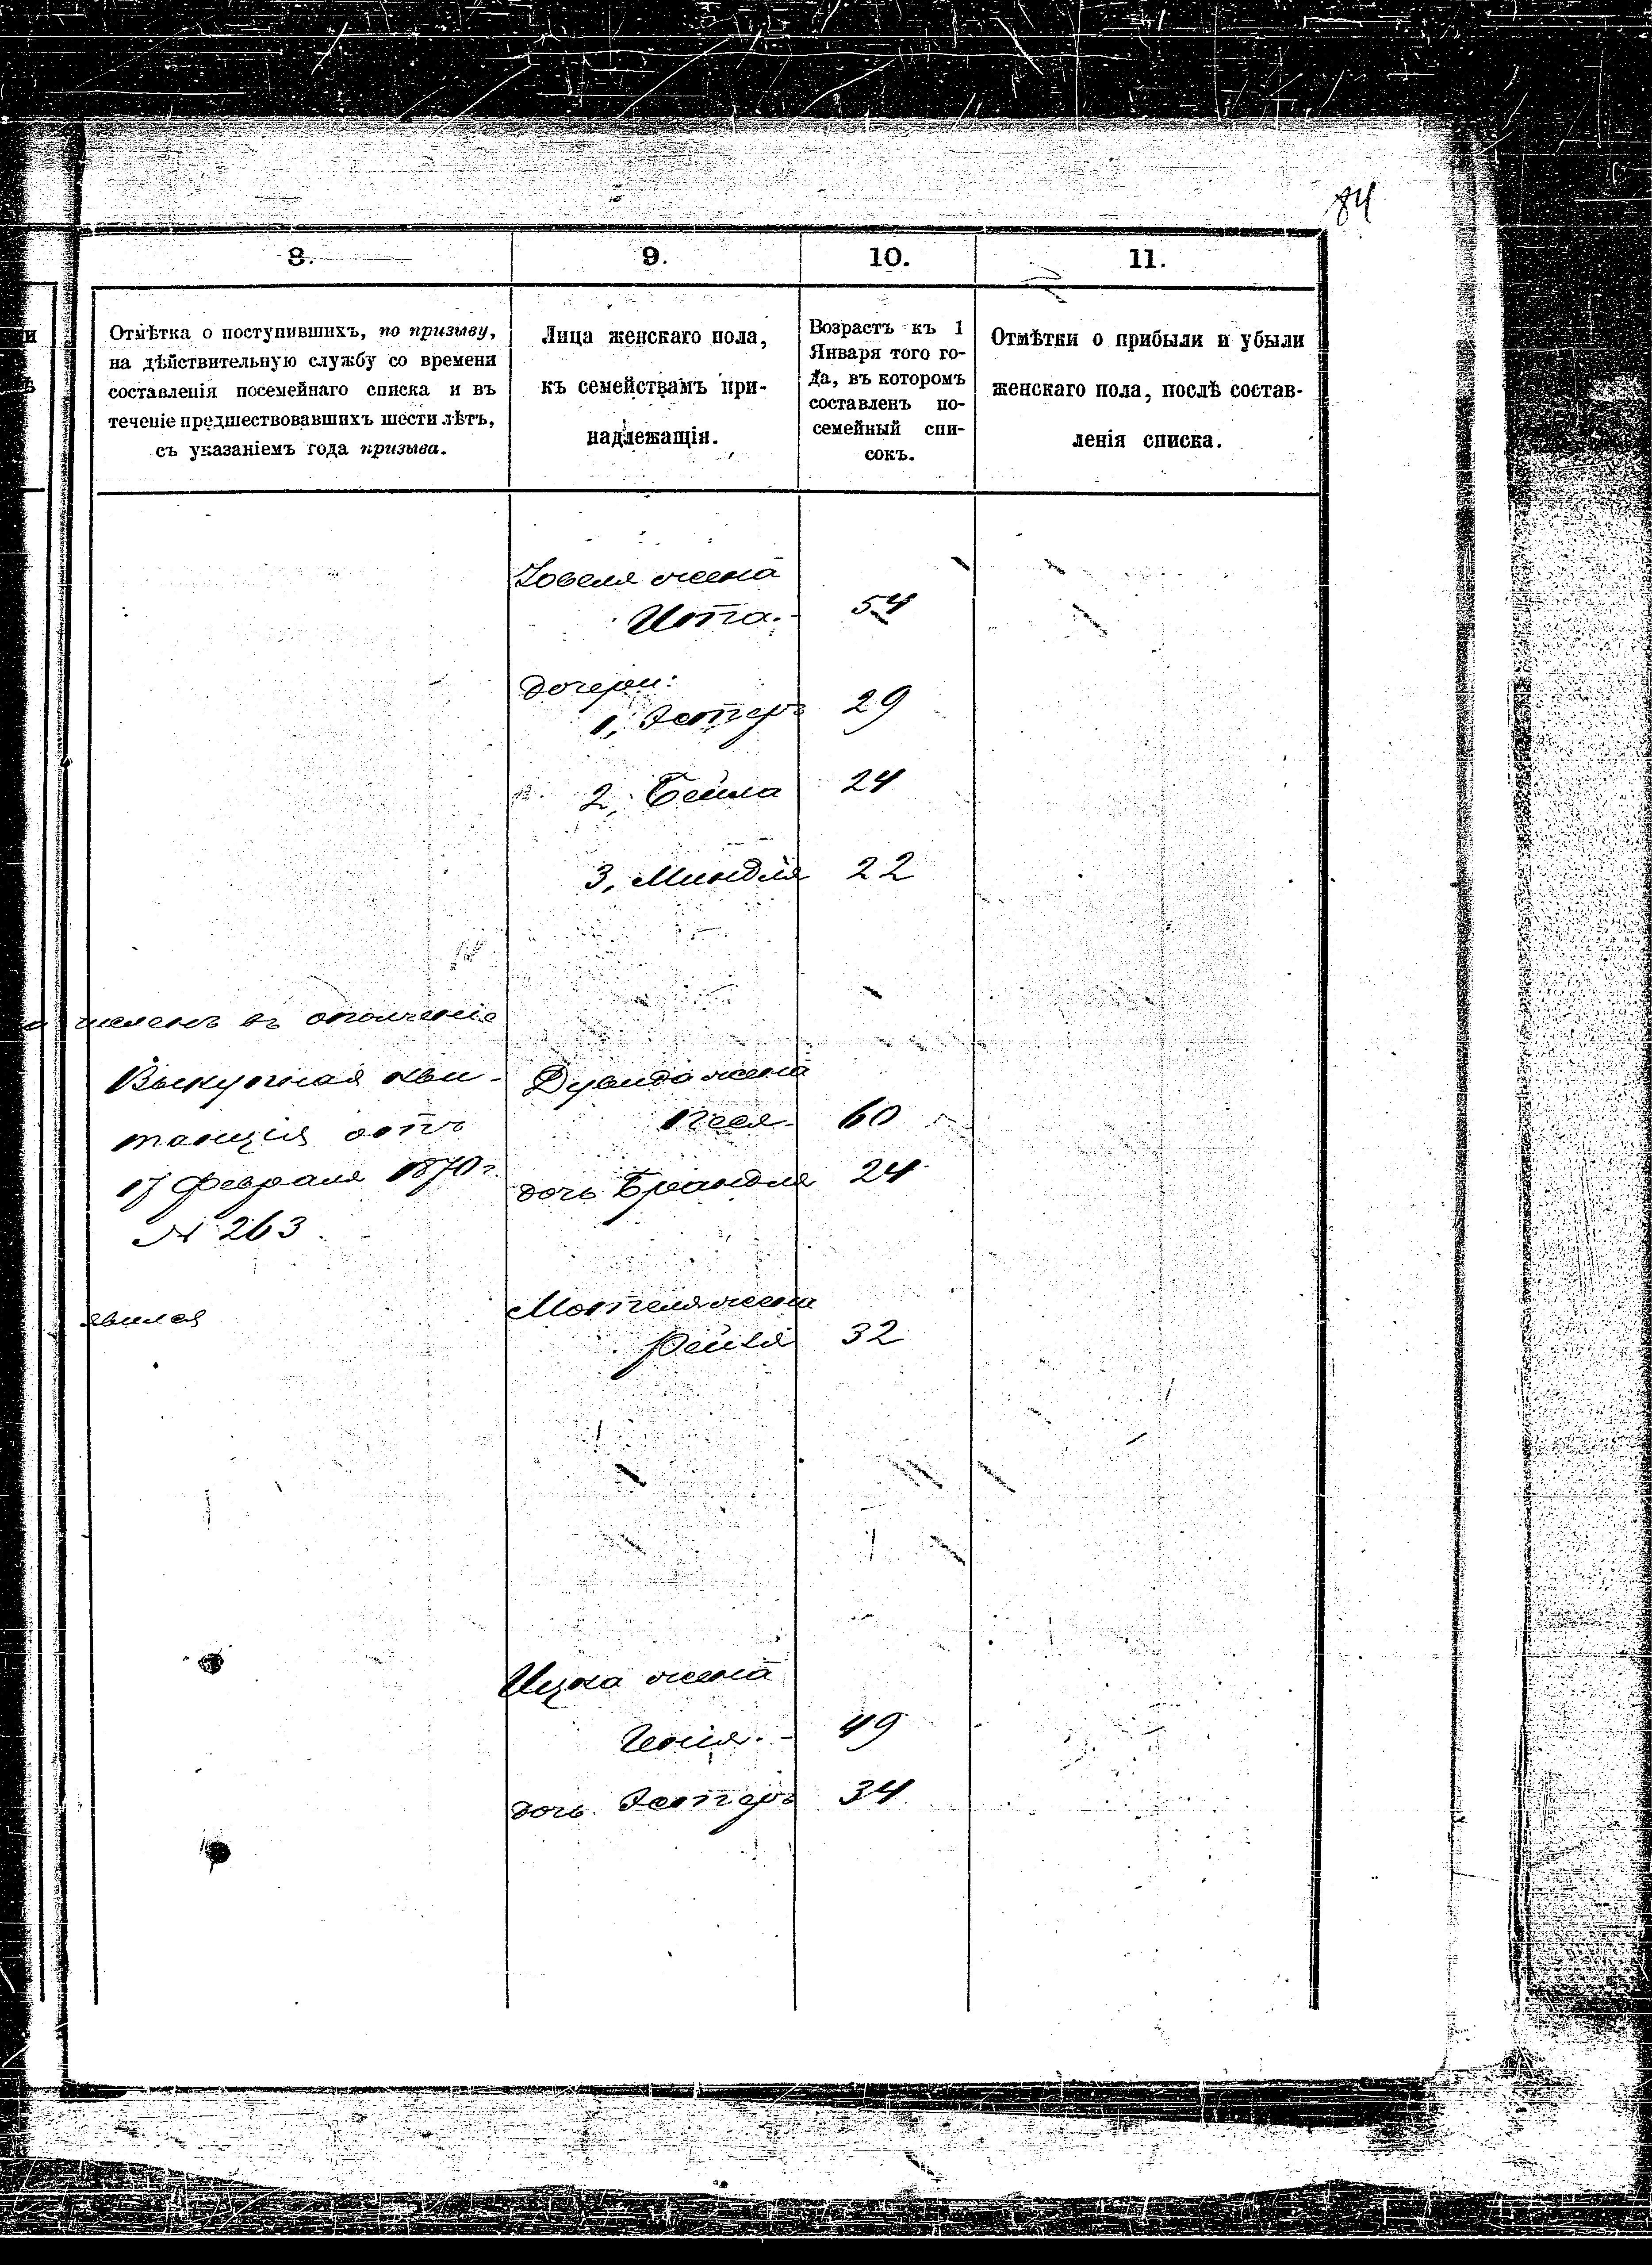 84
8.
9.
10.
11.
Отмѣтка о поступившихъ, по призыву,
на дѣйствительную службу со времени
составленія посемейнаго списка и въ
теченіе предшествовавшихъ шести лѣтъ,
съ указаніемъ года призыва.
Лица женскаго пола,
къ семействамъ при-
надлежащія.
Возрастъ къ 1
Января того го-
да, въ которомъ
составленъ по-
семейный спи-
сокъ.
Отмѣтки о прибыли и убыли
женскаго пола, послѣ состав-
ленія списка.
жена
Ита. 54
дочери:
1, Эстеръ 29
2, Бейла 24
3, Миндля 22
численъ въ ополченіе
Выкупная кви-
танція отъ
17 Февраля 1870 г.
№ 263
Дувида жена
Песя 60
дочь Брандля 24
явился
Мотеля жена
Рейзя 32
Ицка жена
49
дочь Эстеръ 34